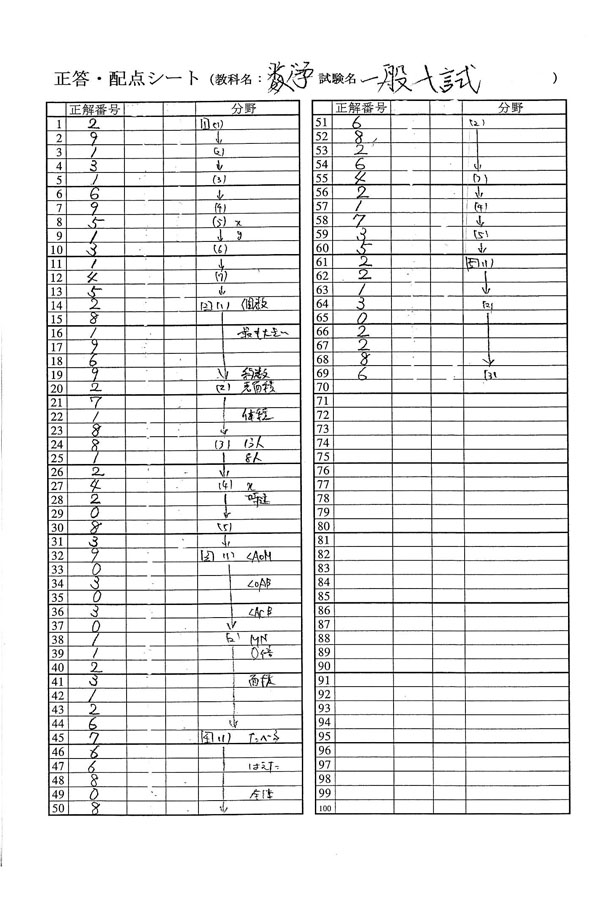 正答・配点シート（教科名：数学 試験名 一般入試 ）
正解番号 分野
1 2 1(1)
2 9
3 1 (2)
4 3
5 1 (3)
6 6
7 9 (4)
8 5 (5) x
9 1 y
10 3 (6)
11 1
12 4 (7)
13 5
14 2 2(1) 個数
15 8
16 1
17 9
18 6
19 9 約数
20 2 (2) 表面積
21 7
22 1 体積
23 8
24 8 (3) 13人
25 1 8人
26 2
27 4 (4) x
28 2
29 0
30 8 (5)
31 3
32 9 3(1) ∠AOM
33 0
34 3 ∠OAB
35 0
36 3 ∠ACB
37 0
38 1 (2) MN
39 1
40 2
41 3 面積
42 1
43 2
44 6
45 7 4(1)
46 6
47 6
48 8
49 0
50 8
正解番号 分野
51 6 (2)
52 8
53 2
54 6
55 4 (3)
56 2
57 1 (4)
58 7
59 3 (5)
60 5
61 2 5(1)
62 2
63 1
64 3 (2)
65 0
66 2
67 2
68 8
69 6 (3)
70
71
72
73
74
75
76
77
78
79
80
81
82
83
84
85
86
87
88
89
90
91
92
93
94
95
96
97
98
99
100